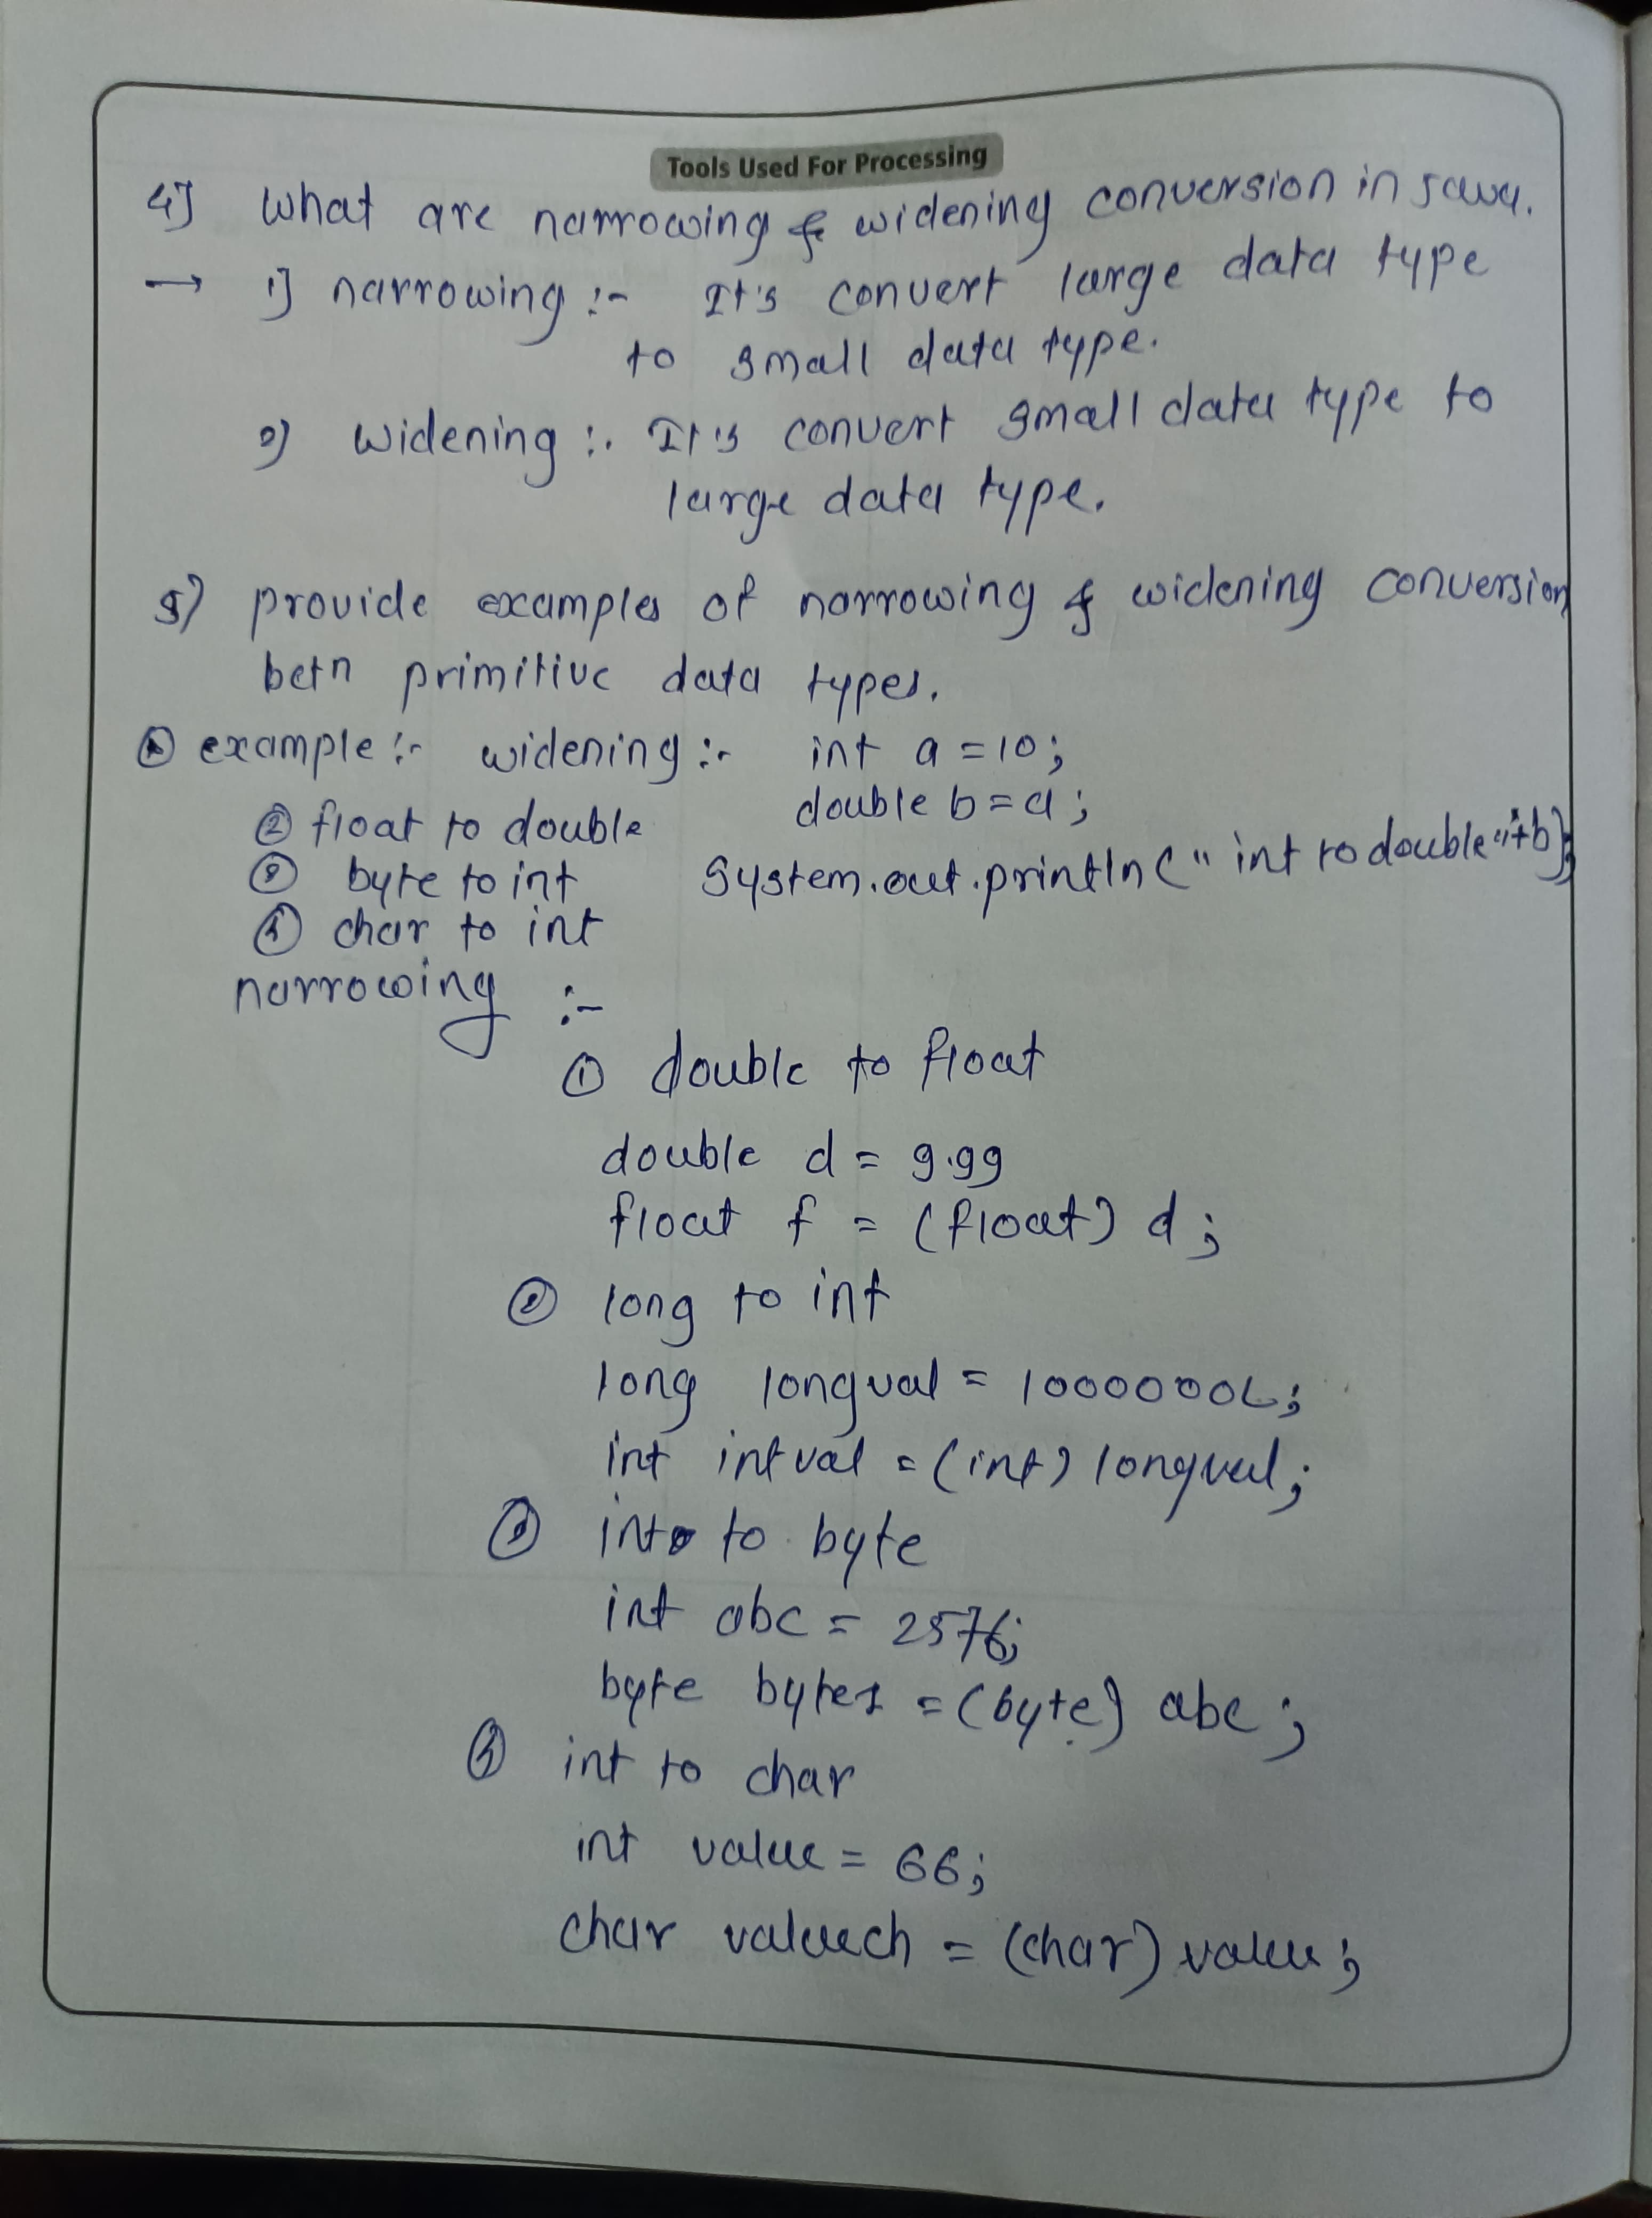 Tools Used For Processing
4] What are narrowing & widening conversion in java.
→ 1] narrowing :- It's convert large data type
to small data type.
2) widening :- It's convert small data type to
large data type.
5) provide examples of narrowing & widening conversion
betn primitive data types.
① example :- widening :- int a = 10;
double b = a;
② float to double
System.out.println(" int to double"+b);
③ byte to int
④ char to int
narrowing :-
① double to float
double d = 9.99
float f = (float) d;
② long to int
long longval = 1000000L;
int intval = (int) longval;
③ int to byte
int abc = 2576;
byte bytes = (byte) abc;
④ int to char
int value = 66;
char valuech = (char) value;